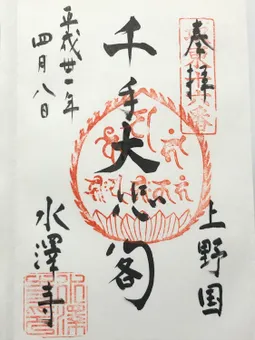 奉拝
上野国
千手大悲閣
水澤寺
平成卅一年
四月八日